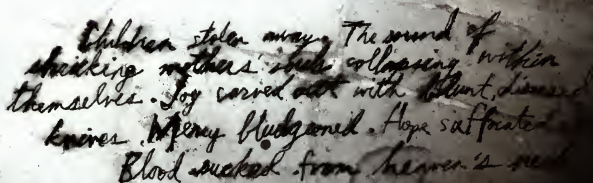 Children stolen away. The sound of
shrieking mothers' souls collapsing within
themselves. Joy carved out with blunt, diseased
knives. Mercy bludgeoned. Hope suffocated
Blood sucked from heaven's